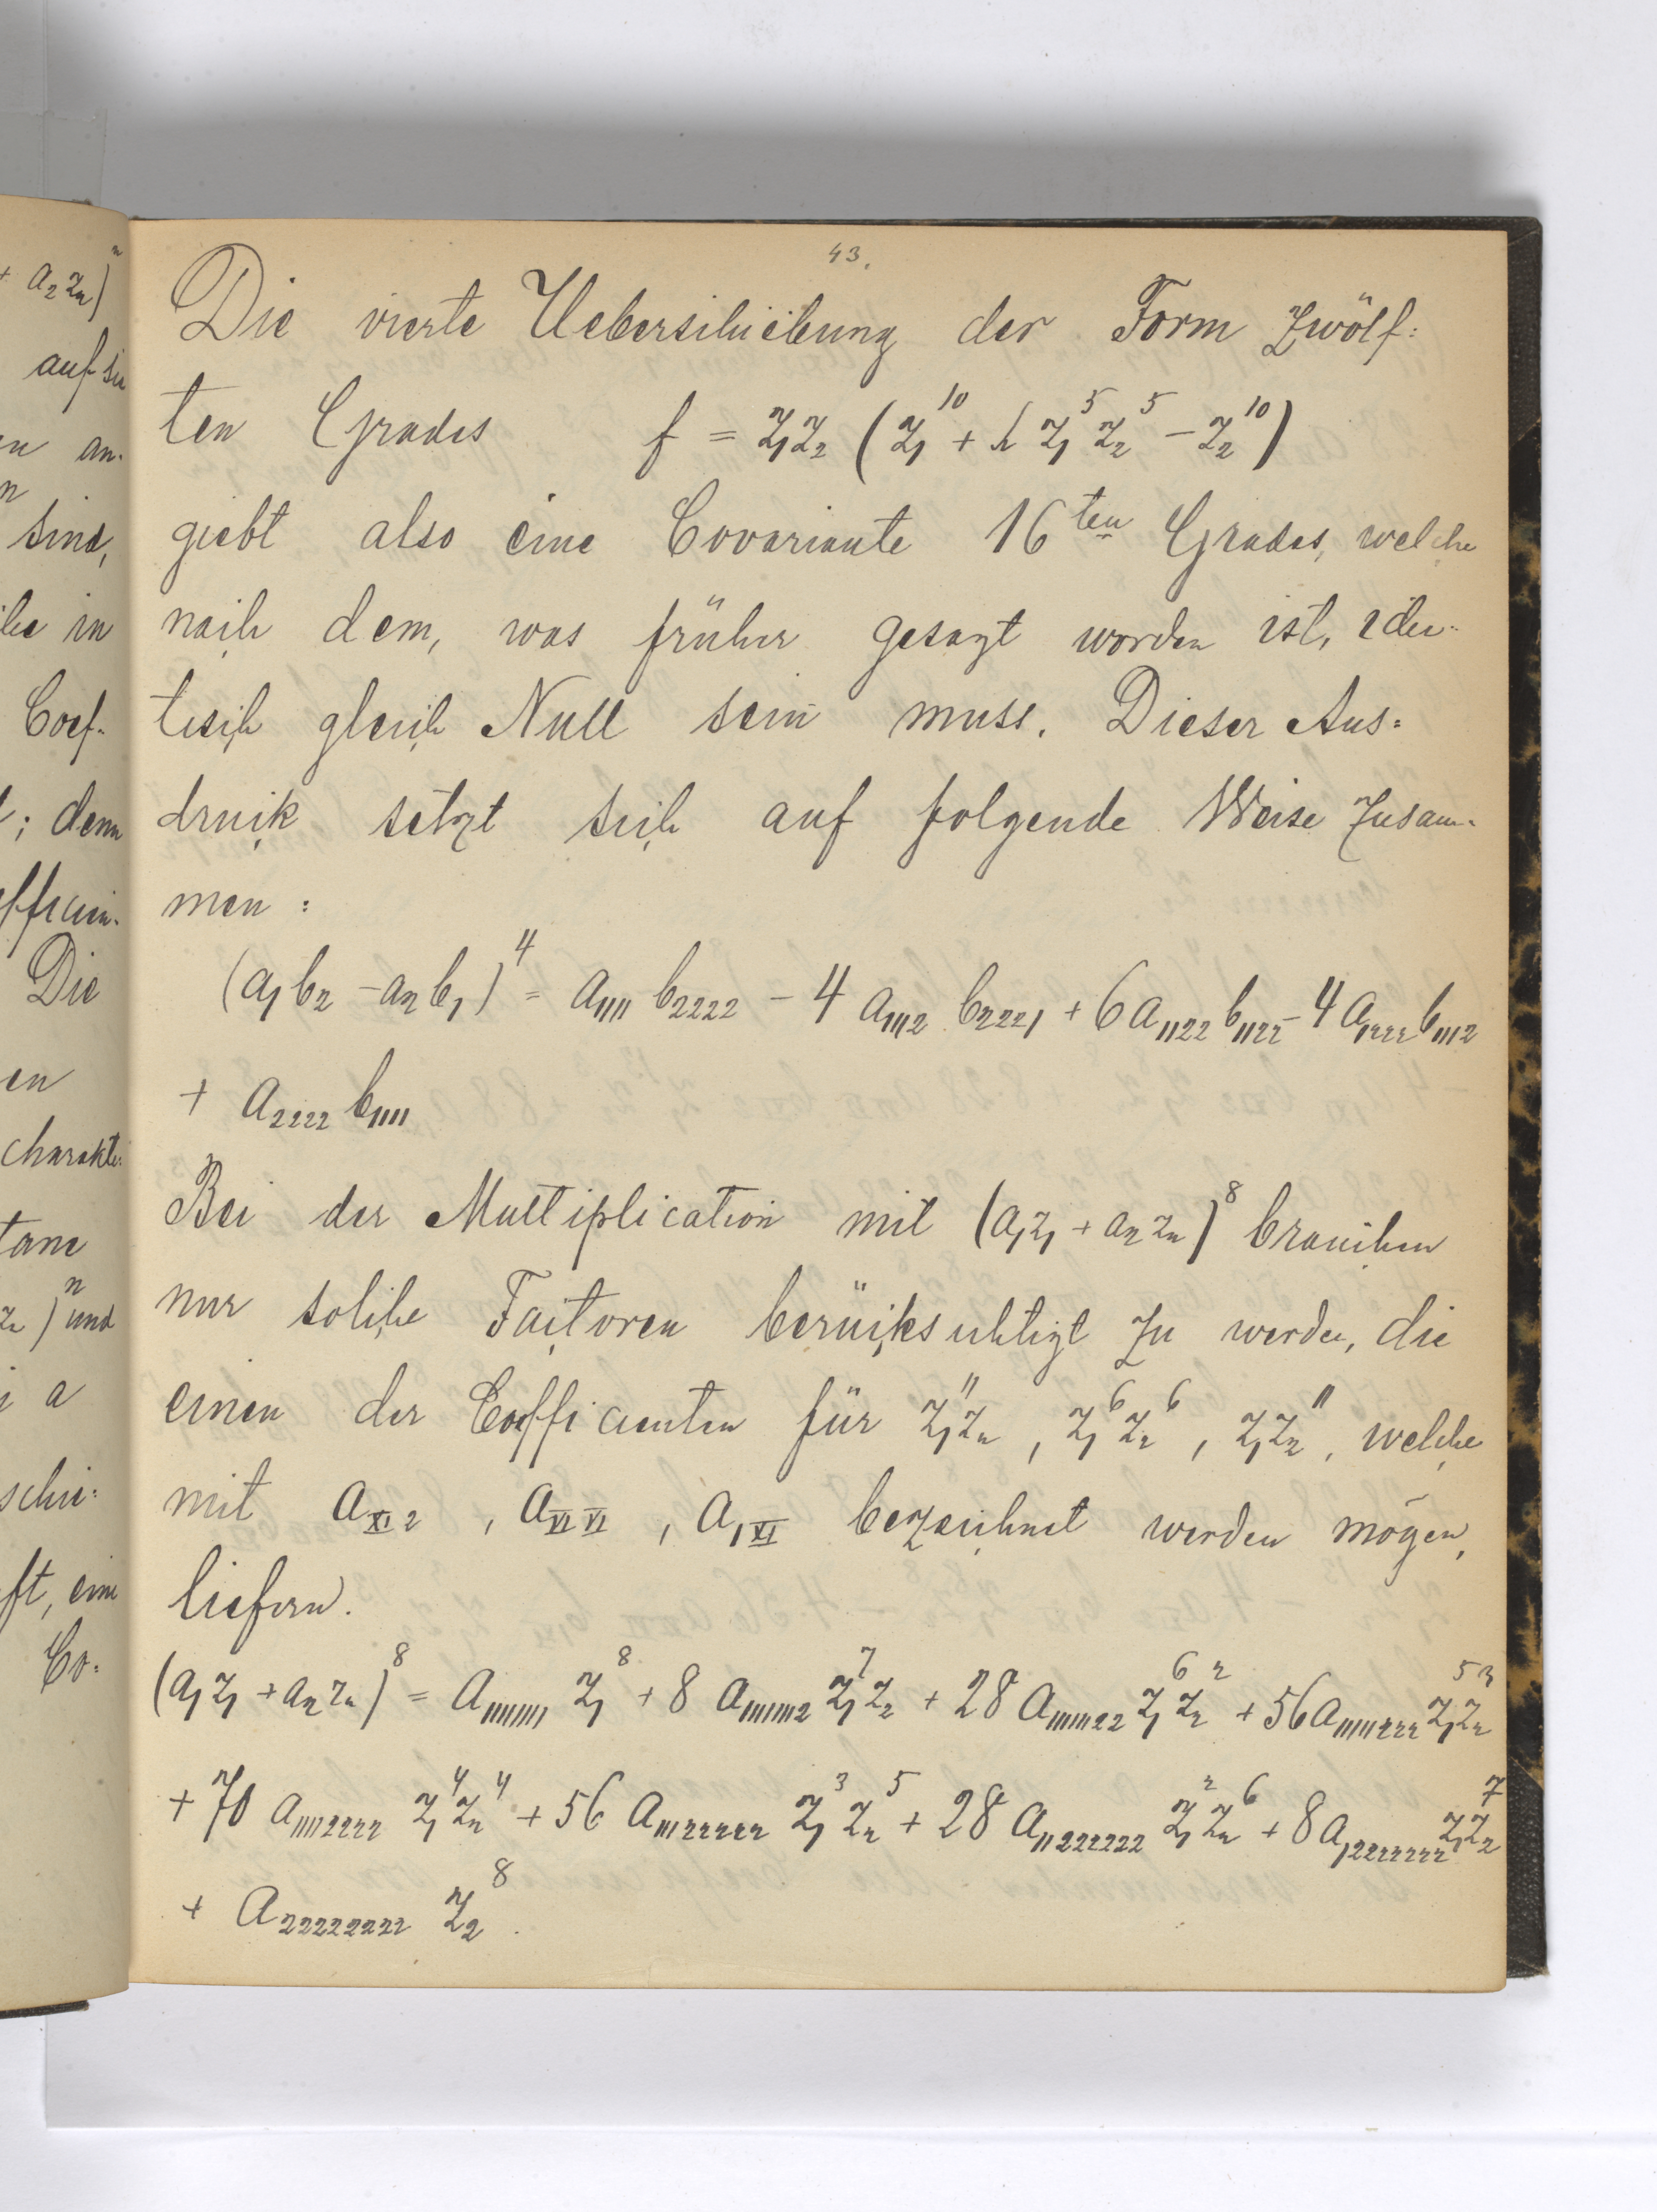 43.
Die vierte Ueberschiebung der Form zwölf=
ten Grades f = z₁z₂ (z₁¹⁰ + h z₁⁵ z₂⁵ − z₂¹⁰)
giebt also eine Covariante 16ten Grades, welche
nach dem, was früher gesagt worden ist, iden-
tisch gleich Null sein muss. Dieser Aus=
druck setzt sich auf folgende Weise zusam-
men :
(a₁b₂ − a₂b₁)⁴ = a₁₁₁₁ b₂₂₂₂ − 4 a₁₁₁₂ b₂₂₂₁ + 6 a₁₁₂₂ b₁₁₂₂ − 4 a₁₂₂₂ b₁₁₁₂
+ a₂₂₂₂ b₁₁₁₁
Bei der Multiplication mit (a₁z₁ + a₂z₂)⁸ brauchen
nur solche Factoren berücksichtigt zu werden, die
einen der Coefficienten für z₁¹¹z₂, z₁⁶z₂⁶, z₁z₂¹¹, welche
mit a_XI 2, a_VI VI, a_1 XI bezeichnet werden mögen,
liefern.
(a₁z₁ + a₂z₂)⁸ = a₁₁₁₁₁₁₁₁ z₁⁸ + 8 a₁₁₁₁₁₁₁₂ z₁⁷z₂ + 28 a₁₁₁₁₁₁₂₂ z₁⁶z₂² + 56 a₁₁₁₁₁₂₂₂ z₁⁵z₂³
+ 70 a₁₁₁₁₂₂₂₂ z₁⁴z₂⁴ + 56 a₁₁₁₂₂₂₂₂ z₁³z₂⁵ + 28 a₁₁₂₂₂₂₂₂ z₁²z₂⁶ + 8 a₁₂₂₂₂₂₂₂ z₁z₂⁷
+ a₂₂₂₂₂₂₂₂ z₂⁸.